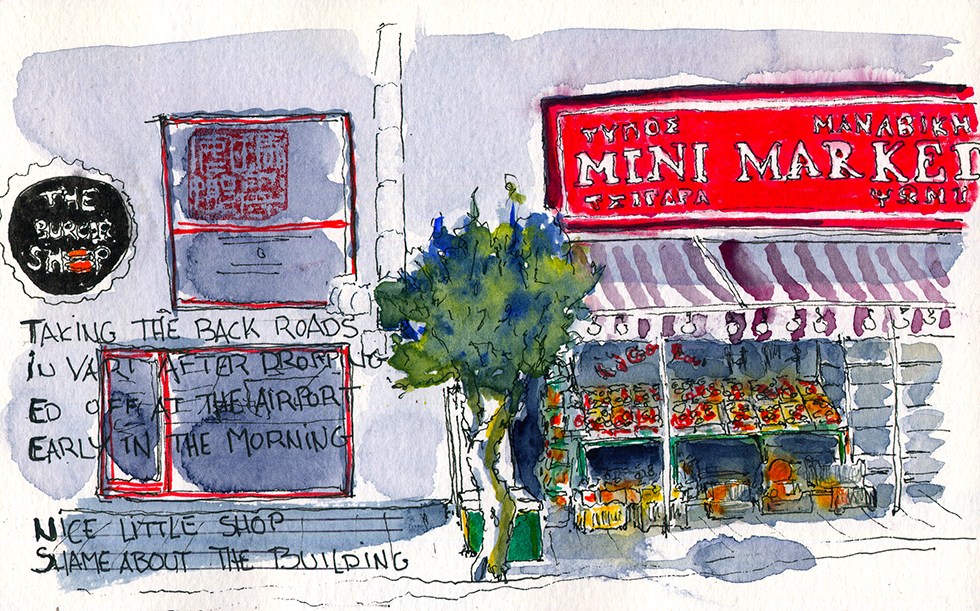 THE
BURGER
SHOP
ΤΥΠΟΣ ΜΑΝΑΒΙΚΗ
MINI MARKET
ΤΣΙΓΑΡΑ ΨΩΜΙ
TAKING THE BACK ROADS
IN VARI AFTER DROPPING
ED OFF AT THE AIRPORT
EARLY IN THE MORNING
NICE LITTLE SHOP
SHAME ABOUT THE BUILDING